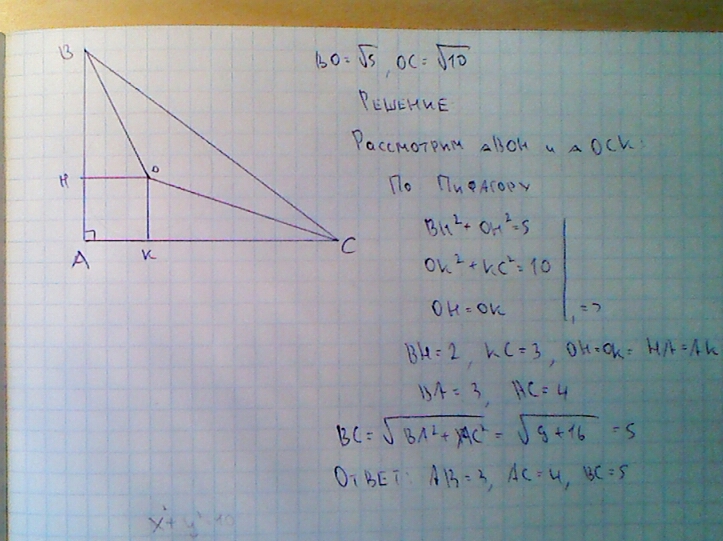 BO = √5, OC = √10
РЕШЕНИЕ
РАССМОТРИМ ΔBOH и ΔOCK:
ПО ПИФАГОРУ
BH² + OH² = 5
OK² + KC² = 10
OH = OK , =>
BH = 2, KC = 3, OH = OK = HA = AK
BA = 3, AC = 4
BC = √BA² + AC² = √9 + 16 = 5
ОТВЕТ: AB = 3, AC = 4, BC = 5
B
O
H
A
K
C